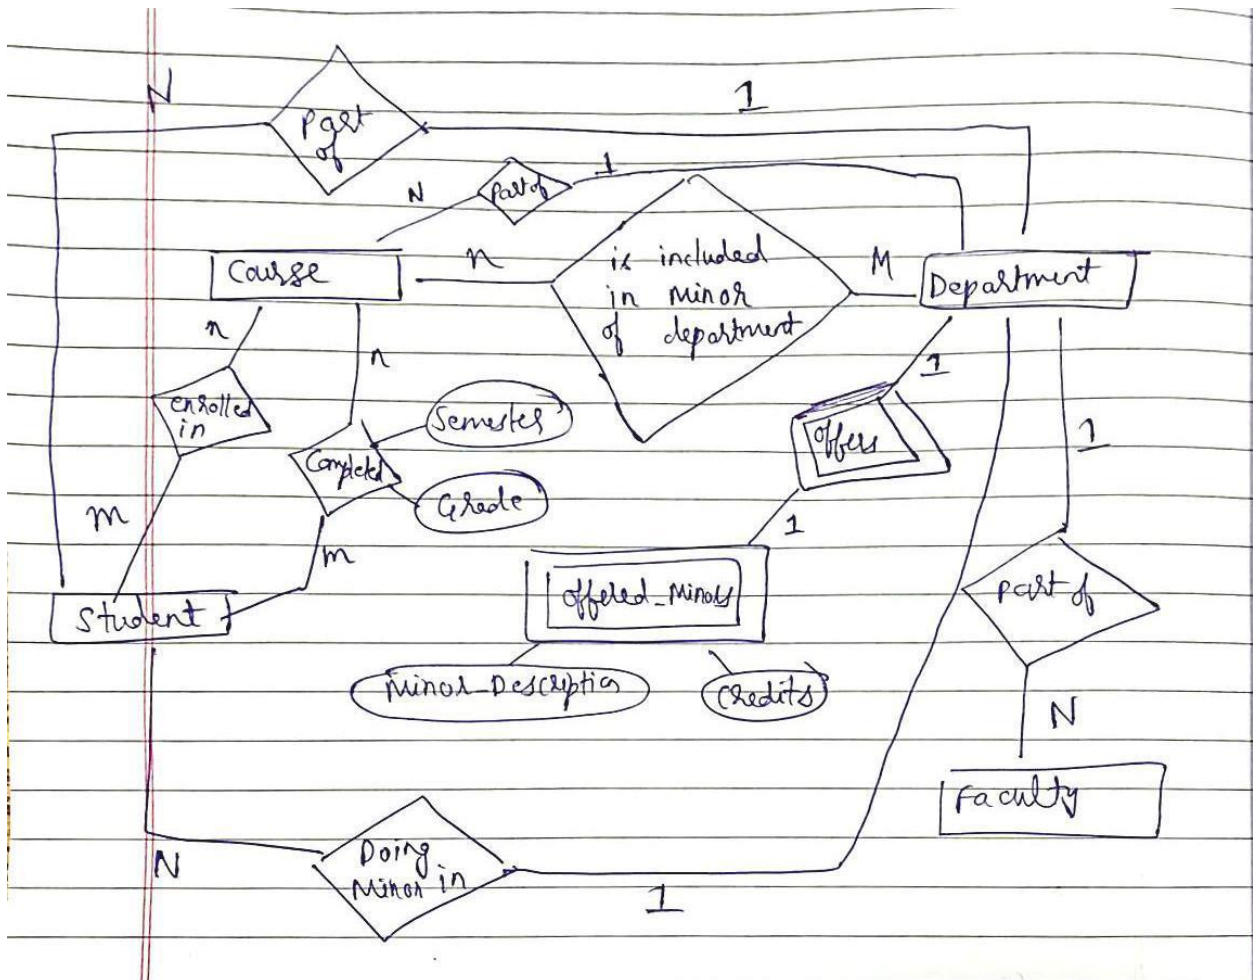 N
1
Part
of
N
Part of
1
Course
n
is included
in Minor
of department
M
Department
n
n
enrolled
in
Semester
Completed
Grade
1
offers
1
m
m
1
Student
Offered_Minors
Part of
Minor_Description
Credits
N
Faculty
N
Doing
Minor in
1